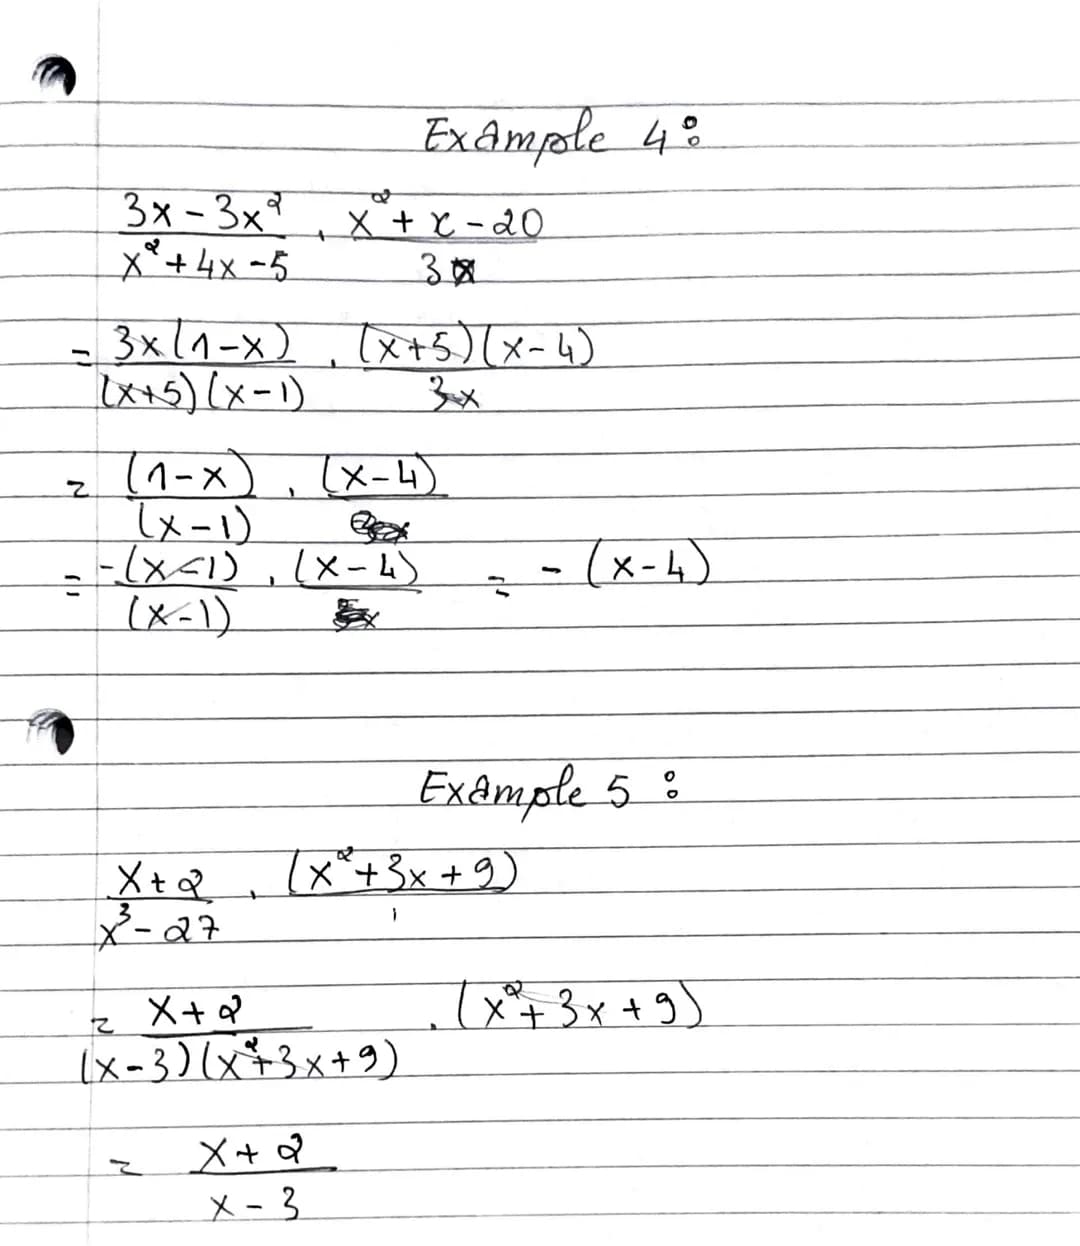 Example 4:
3x - 3x² / x² + 4x - 5 · x² + x - 20 / 3x
= 3x(1-x) / (x+5)(x-1) · (x+5)(x-4) / 3x
= (1-x) / (x-1) · (x-4)
= -(x-1) / (x-1) · (x-4) = -(x-4)
Example 5:
x+2 / x³ - 27 · (x² + 3x + 9) / 1
= x+2 / (x-3)(x²+3x+9) · (x² + 3x + 9)
= x+2 / x-3